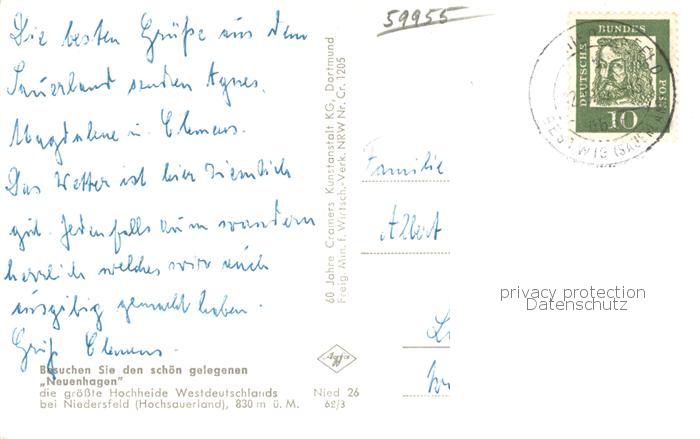 Die besten Grüße aus dem
Sauerland senden Agnes,
Magdalene u. Clemens.
Das Wetter ist hier ziemlich
gut. Jedenfalls zum wandern
herrlich welches wir auch
ausgibig gemacht haben.
Gruß Clemens.
Besuchen Sie den schön gelegenen
„Neuenhagen"
die größte Hochheide Westdeutschlands Nied 26
bei Niedersfeld (Hochsauerland), 830 m ü. M. 62/3
60 Jahre Cramers Kunstanstalt KG, Dortmund
Freig. Min. f. Wirtsch.-Verk. NRW Nr. Cr. 1205
Agfa
59955
DEUTSCHE BUNDESPOST
10
BESTWIG (SAUERL
Familie
Albert
privacy protection
Datenschutz